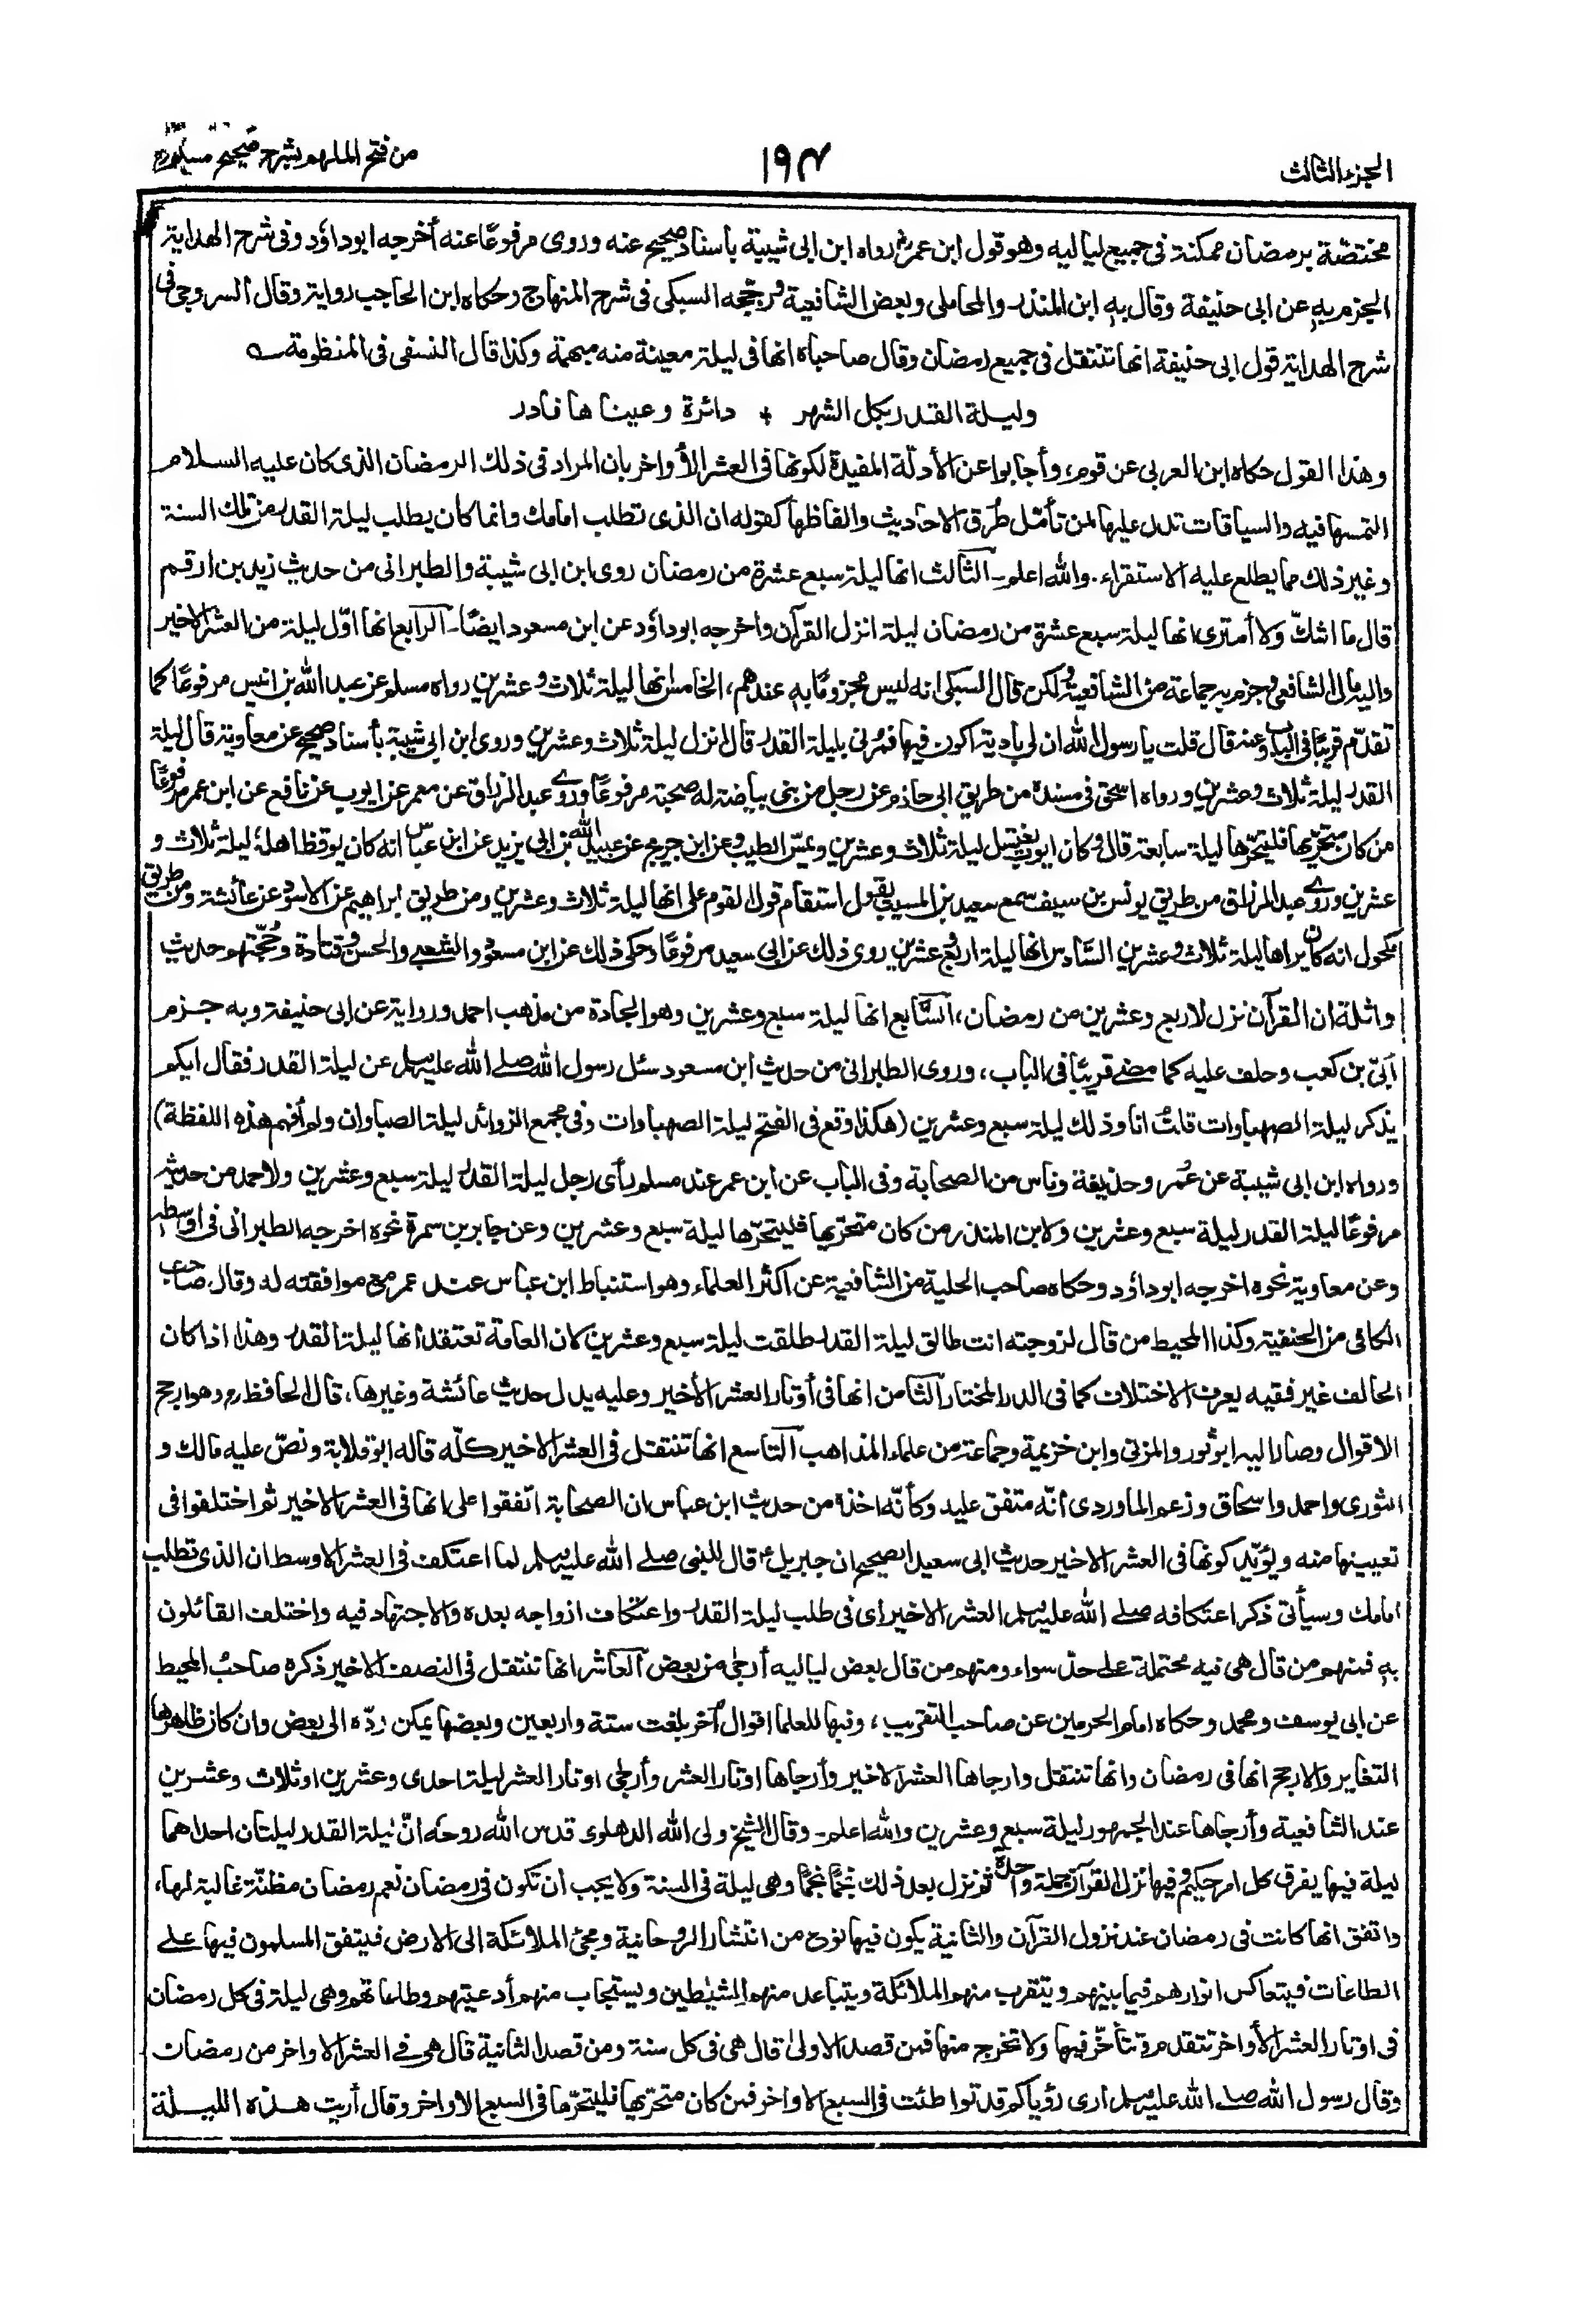 الجزء الثالث
١٩٣
من فتح الملهم بشرح صحيح مسلم
مختصّة برمضان ممكنة فى جميع لياليه وهو قول ابن عمرؓ رواه ابن ابى شيبة باسناد صحيح عنه وروى مرفوعًا عنه أخرجه ابوداؤد وفى شرح الهداية
الجزم به عن ابى حنيفة وقال به ابن المنذر والمحاملى وبعض الشافعية ورجّحه السبكى فى شرح المنهاج وحكاه ابن الحاجب رواية وقال السروجى فى
شرح الهداية قول ابى حنيفة انها تنتقل فى جميع رمضان وقال صاحباه انها فى ليلة معينة منه مبهمة وكذا قال النسفى فى المنظومة ؎
وليلة القدر بكل الشهر + دائرة وعيناها فادر
وهذا القول حكاه ابن العربى عن قوم، وأجابوا عن الأدلّة المفيدة لكونها فى العشر الأواخر بان المراد فى ذلك الرمضان الذى كان عليه السلام
التمسها فيه والسياقات تدل عليها لمن تأمّل طُرق الاحاديث والفاظها كقوله ان الذى تطلب امامك وانما كان يطلب ليلة القدر من تلك السنة
وغير ذلك مما يطلع عليه الاستقراء. والله اعلم۔ الثالث انها ليلة سبع عشرة من رمضان روى ابن ابى شيبة والطبرانى من حديث زيد بن ارقم
قال ما اشكّ ولا أمترى انها ليلة سبع عشرة من رمضان ليلة انزل القرآن واخرجه ابوداؤد عن ابن مسعود ايضًا۔ الرابع انها اوّل ليلة من العشر الاخير
واليه مال الشافعى وجزم به جماعة من الشافعية ولكن قال السبكى انه ليس مجزومًا به عندهم، الخامس انها ليلة ثلاث وعشرين رواه مسلم عن عبد الله بن انيس مرفوعًا كما
تقدّم قريبًا فى الباب وعنه قال قلت يا رسول الله ان لى بادية اكون فيها فمُرنى بليلة القدر قال انزل ليلة ثلاث وعشرين وروى ابن ابى شيبة بأسناد صحيح عن معاوية قال ليلة
القدر ليلة ثلاث وعشرين ورواه اسحق فى مسنده من طريق ابى حازم عن رجل من بنى بياضة له صحبة مرفوعًا وروى عبد الرزاق عن معمر عن ايوب عن نافع عن ابن عمر مرفوعًا
من كان متحرّيها فليتحرّها ليلة سابعة قال وكان ايوب يغتسل ليلة ثلاث وعشرين ويمسّ الطيب وعن ابن جريج عن عبيد الله بن ابى يزيد عن ابن عباس انه كان يوقظ اهله ليلة ثلاث و
عشرين وروى عبد الرزاق من طريق يونس بن سيف سمع سعيد بن المسيب يقول استقام قول القوم على انها ليلة ثلاث وعشرين ومن طريق ابراهيم عن الاسود عن عائشة ومن طريق
مكحول انه كان يراها ليلة ثلاث وعشرين السّادس انها ليلة اربع وعشرين روى ذلك عن ابى سعيد مرفوعًا وحكى ذلك عن ابن مسعود والشعبى والحسن وقتادة وحُجّتهم حديث
واثلة ان القرآن نزل لاربع وعشرين من رمضان، السّابع انها ليلة سبع وعشرين وهو الجادة من مذهب احمد ورواية عن ابى حنيفة وبه جزم
أبىّ بن كعب وحلف عليه كما مضى قريبًا فى الباب، وروى الطبرانى من حديث ابن مسعود سئل رسول الله صلى الله عليه وسلم عن ليلة القدر فقال ايكم
يذكر ليلة الصهباوات قلتُ انا وذلك ليلة سبع وعشرين (هكذا وقع فى الفتح ليلة الصهباوات وفى مجمع الزوائد ليلة الصباوان ولم أفهم هذه اللفظة)
ورواه ابن ابى شيبة عن عُمر وحذيفة وناس من الصحابة وفى الباب عن ابن عمر عند مسلم رأى رجل ليلة القدر ليلة سبع وعشرين ولاحمد من حديثه
مرفوعًا ليلة القدر ليلة سبع وعشرين ولابن المنذر من كان متحرّيها فليتحرّها ليلة سبع وعشرين وعن جابر بن سمرة نحوه اخرجه الطبرانى فى اوسطه،
وعن معاوية نحوه اخرجه ابوداؤد وحكاه صاحب الحلية من الشافعية عن اكثر العلماء وهو استنباط ابن عباس عند عمر مع موافقته له وقال صاحب
الكافى من الحنفية وكذا المحيط من قال لزوجته انت طالق ليلة القدر طلقت ليلة سبع وعشرين لان العامة تعتقد انها ليلة القدر وهذا اذا كان
الحالف غير فقيه يعرف الاختلاف كما فى الدر المختار الثامن انها فى أوتار العشر الأخير وعليه يدل حديث عائشة وغيرها، قال الحافظ رح وهو ارجح
الاقوال وصار اليه ابو ثور والمزنى وابن خزيمة وجماعة من علماء المذاهب التاسع انها تنتقل فى العشر الاخير كلّه قاله ابو قلابة ونصّ عليه مالك و
الثورى واحمد واسحاق وزعم الماوردى انّه متفق عليه وكأنّه اخذه من حديث ابن عباس ان الصحابة اتّفقوا على انها فى العشر الاخير ثم اختلفوا فى
تعيينها منه ويؤيّد كونها فى العشر الاخير حديث ابى سعيد الصحيح ان جبريلؑ قال للنبى صلى الله عليه وسلم لما اعتكف فى العشر الاوسط ان الذى تطلب
امامك وسيأتى ذكر اعتكافه صلى الله عليه وسلم العشر الاخير اى فى طلب ليلة القدر واعتكاف ازواجه بعده والاجتهاد فيه واختلف القائلون
به فمنهم من قال هى فيه محتملة على حدّ سواء ومنهم من قال بعض لياليه أرجى من بعض العاشر انها تنتقل فى النصف الاخير ذكره صاحبُ المحيط
عن ابى يوسف ومحمد وحكاه امام الحرمين عن صاحب التقريب، وفيها للعلما اقوال اُخر بلغت ستة واربعين وبعضها يمكن ردّه الى بعض وان كان ظاهرها
التغاير والارجح انها فى رمضان وانها تنتقل وارجاها العشر الاخير وأرجاها اوتار العشر وأرجى اوتار العشر ليلة احدى وعشرين او ثلاث وعشرين
عند الشافعية وأرجاها عند الجمهور ليلة سبع وعشرين والله اعلم۔ وقال الشيخ ولى الله الدهلوى قدس الله روحه انّ ليلة القدر ليلتان احداهما
ليلة فيها يفرق كل امر حكيم وفيها نزل القرآن جملة واحدة ثم نزل بعد ذلك نجمًا نجمًا وهى ليلة فى السنة ولا يجب ان تكون فى رمضان نعم رمضان مظنّة غالبة لها،
واتفق انها كانت فى رمضان عند نزول القرآن والثانية يكون فيها نوع من انتشار الروحانية ومجئ الملائكة الى الارض فيتفق المسلمون فيها على
الطاعات فيتعاكس انوارهم فيما بينهم ويتقرب منهم الملائكة ويتباعد منهم الشيٰطين ويستجاب منهم أدعيتهم وطاعاتهم وهى ليلة فى كل رمضان
فى اوتار العشر الأواخر تتقدم وتتأخّر فيها ولا تخرج منها فمن قصد الاولىٰ قال هى فى كل سنة ومن قصد الثانية قال هى فى العشر الاواخر من رمضان
وقال رسول الله صلى الله عليه وسلم ارى رؤياكم قد تواطئت فى السبع الاواخر فمن كان متحرّيها فليتحرّها فى السبع الاواخر وقال أُريت هذه الليلة